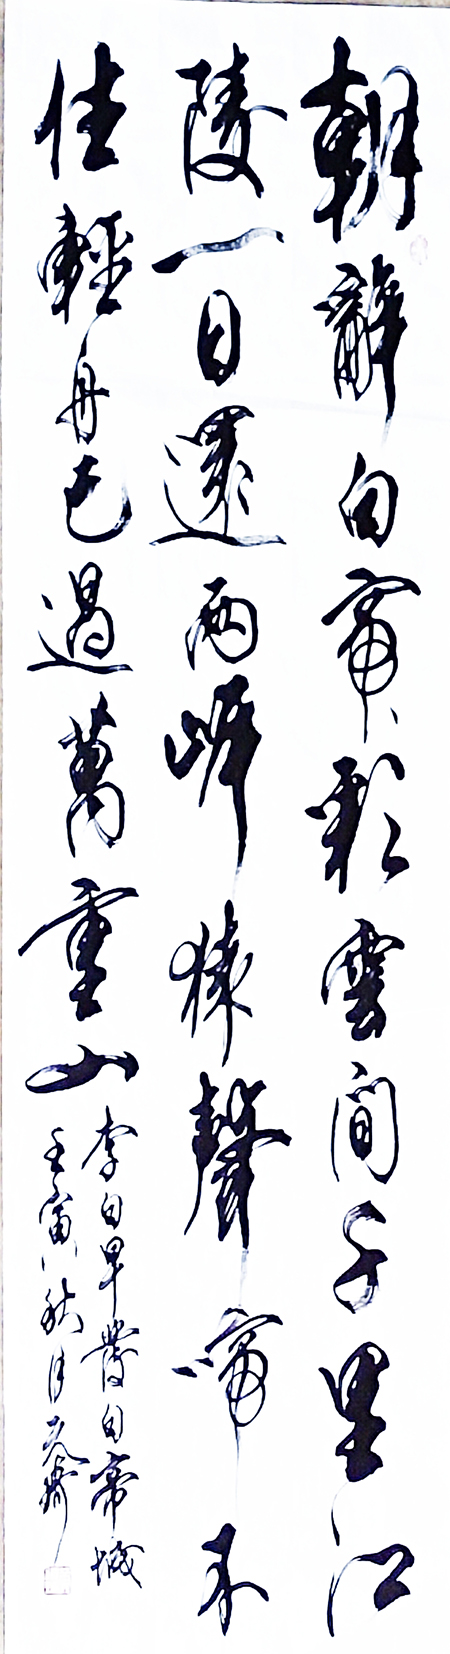 朝辭白帝彩雲間千里江
陵一日還兩岸猿聲啼不
住輕舟已過萬重山
李白早發白帝城
壬寅秋月元齋